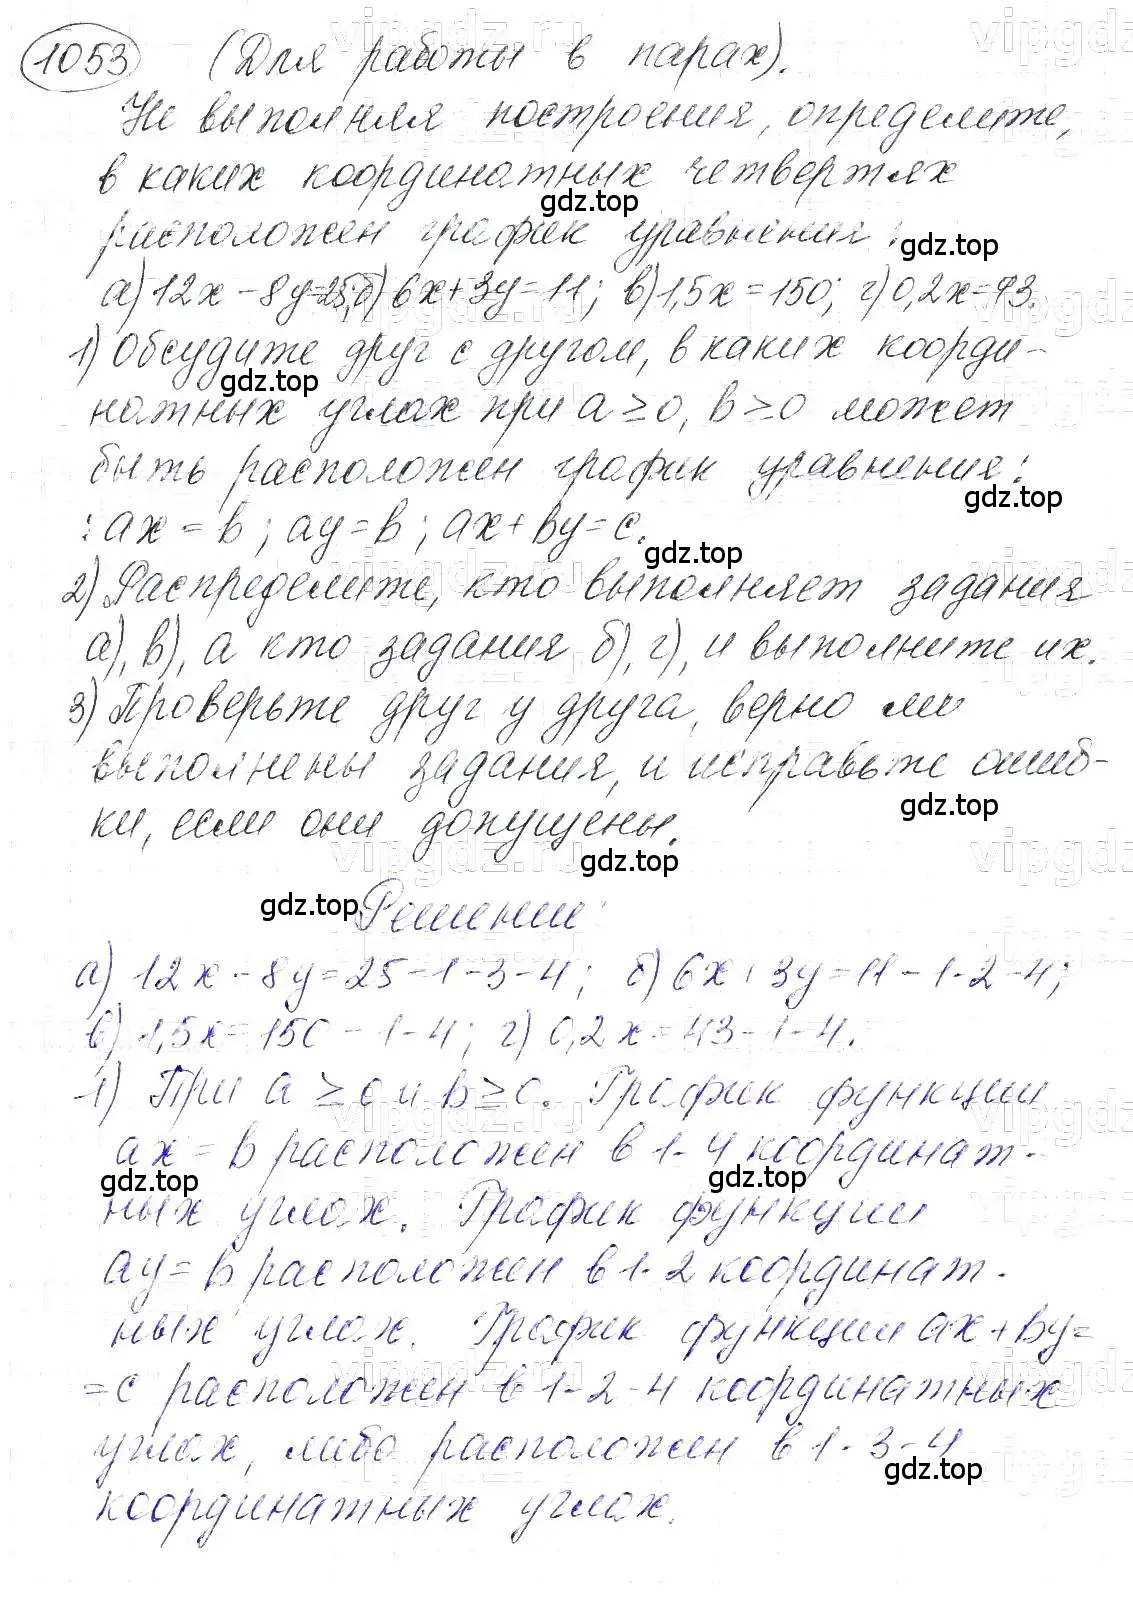 1053 (Для работы в парах).
Не выполняя построения, определите,
в каких координатных четвертях
gdz.top
расположен график уравнения:
gdz.top
а) 12x - 8y = 25; б) 6x + 3y = 11; в) 1,5x = 150; г) 0,2x = 43.
1) Обсудите друг с другом, в каких коорди-
gdz.top
натных углах при a ≥ 0, b ≥ 0 может
быть расположен график уравнения:
gdz.top
: ax = b; ay = b; ax + by = c.
gdz.top
2) Распределите, кто выполняет задания
а), в), а кто задания б), г), и выполните их.
3) Проверьте друг у друга, верно ли
выполнены задания, и исправьте ошиб-
gdz.top
ки, если они допущены.
gdz.top
gdz.top
Решение:
а) 12x - 8y = 25 - 1 - 3 - 4; б) 6x + 3y = 11 - 1 - 2 - 4;
в) 1,5x = 150 - 1 - 4; г) 0,2x = 43 - 1 - 4.
1) При a ≥ 0 и b ≥ 0. График функции
ax = b расположен в 1 - 4 координат-
gdz.top
gdz.top
ных углах. График функции
ay = b расположен в 1 - 2 координат-
ных углах. График функции ax + by =
= c расположен в 1 - 2 - 4 координатных
углах, либо расположен в 1 - 3 - 4
gdz.top
координатных углах.